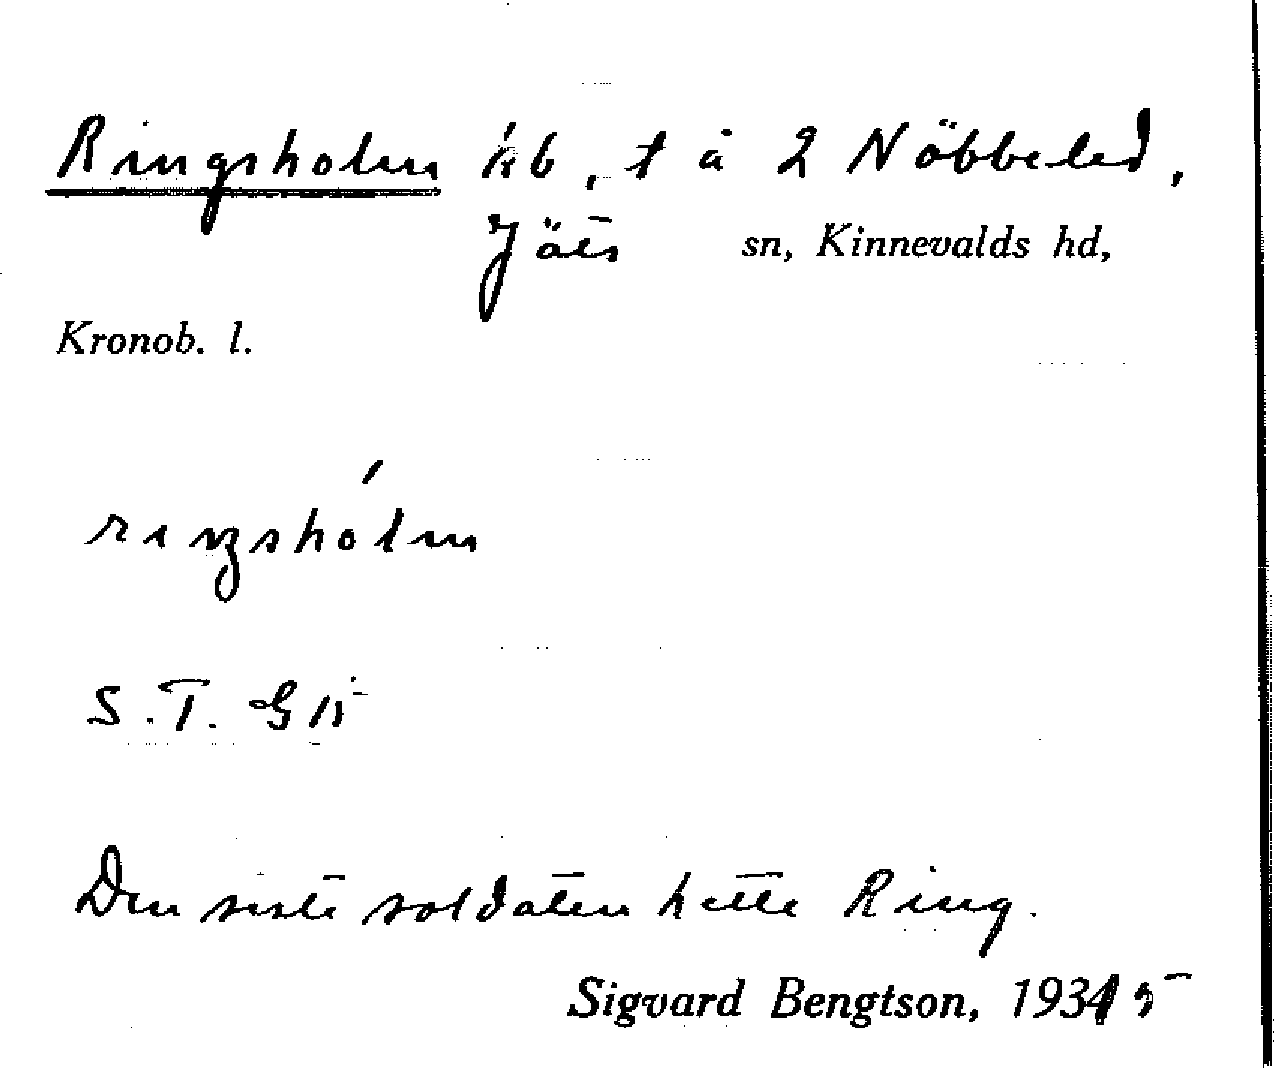 Ringsholm kb, t å 2 Nöbbeled,
Jäts sn, Kinnevalds hd,
Kronob. l.
rıŋshólm
S.T. G15
Den siste soldaten hette Ring.
Sigvard Bengtson, 1935